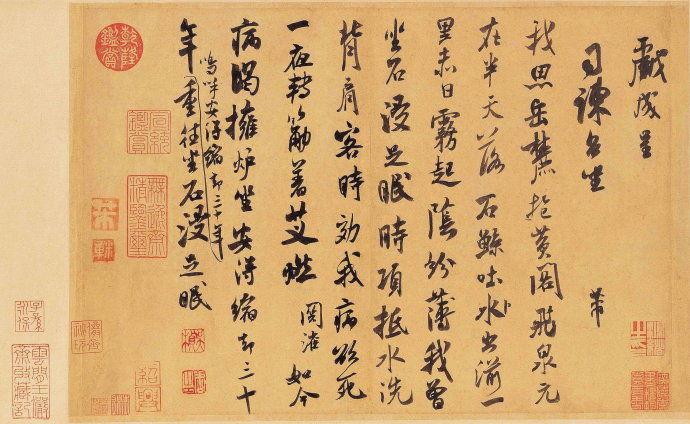 戲成呈
司諫台坐
芾
我思岳麓抱黃閣飛泉元
在半天落石鯨吐水出湔一
里赤日霧起陰紛薄我曾
坐石浸足眠時項抵水洗
背肩客時效我病欲死
一夜轉筋著艾燃關灌如今
病渴擁爐坐安得縮却三十
嗚呼安得縮却三十年
年重往坐石浸足眠
乾隆鑑賞
紹興